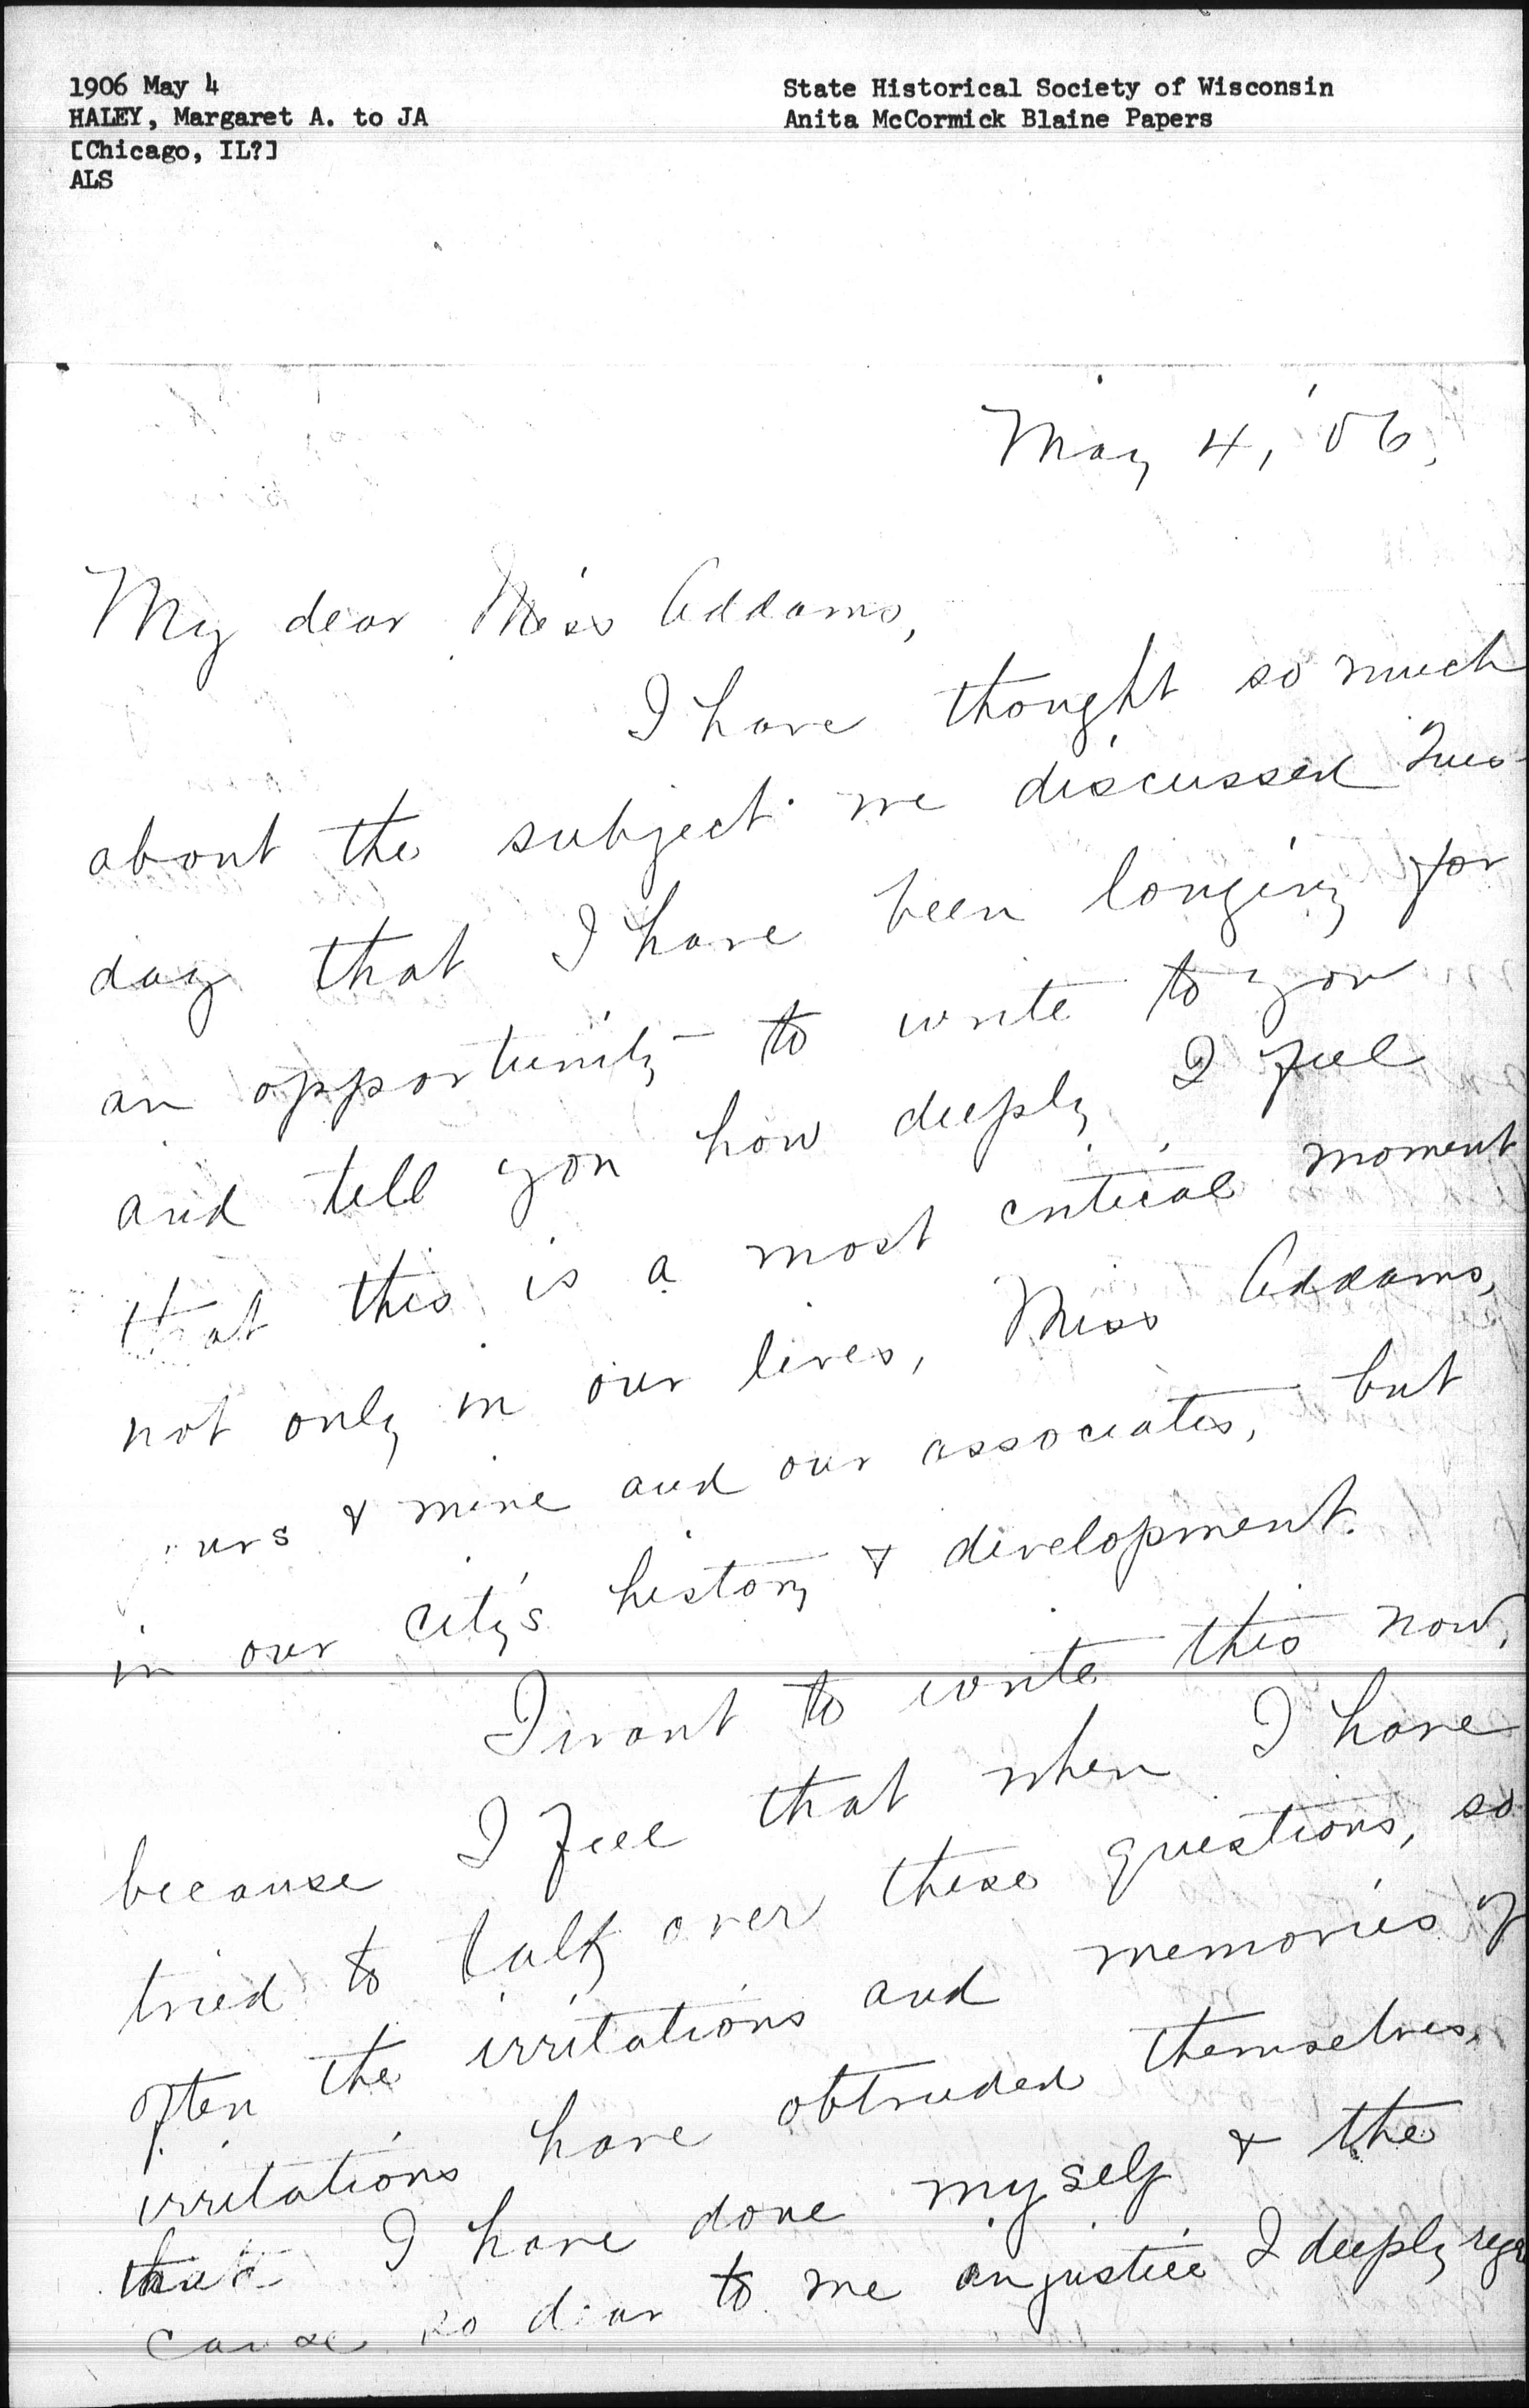 1906 May 4
HALEY, Margaret A. to JA
[Chicago, IL?]
ALS
State Historical Society of Wisconsin
Anita McCormick Blaine Papers
May 4, '06.
My dear Miss Addams,
I have thought so much
about the subject we discussed Tues-
day that I have been longing for
an opportunity to write to you
and tell you how deeply I feel
that this is a most critical moment
not only in our lives, Miss Addams,
urs & mine and our associates, but
in our city's history & development.
I want to write this now,
because I feel that when I have
tried to talk over these questions, so
often the irritations and memories of
irritations have obtruded themselves,
that I have done myself & the
cause so dear to me injustice I deeply regr